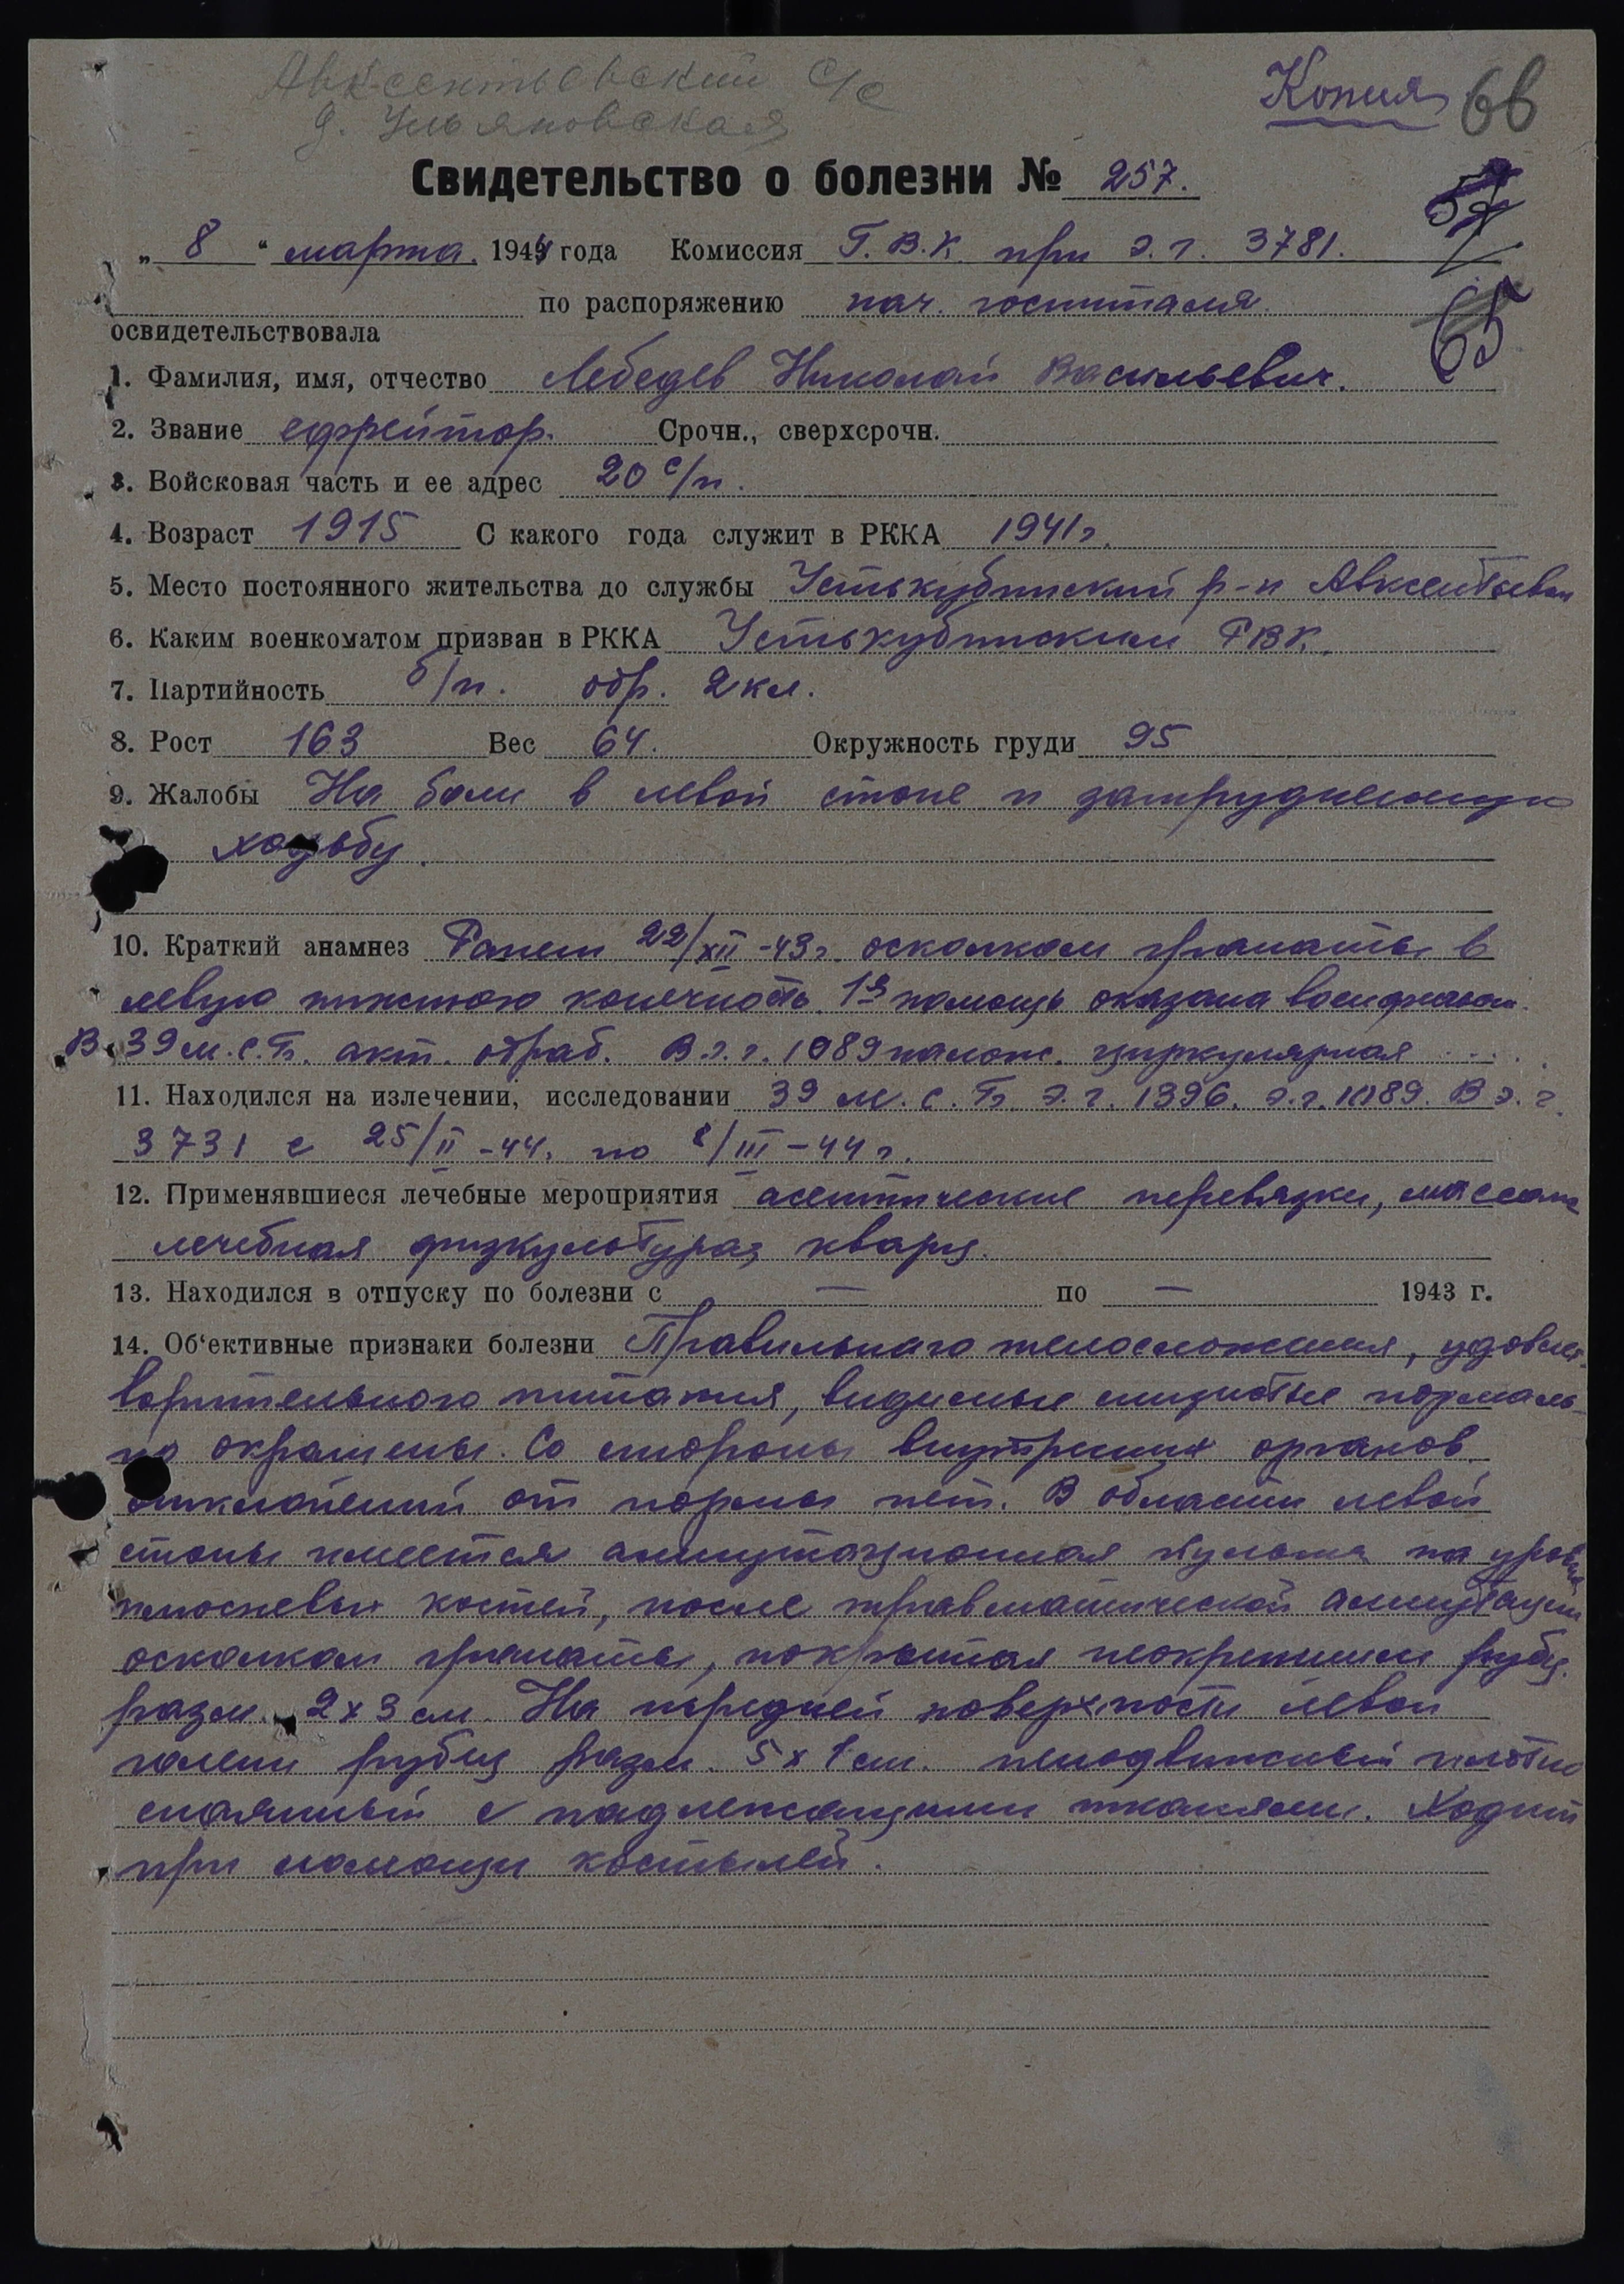 Авксентьевский с/с
д. Ульяновская
Копия 66
Свидетельство о болезни № 257.
„ 8 “ марта 1944 года Комиссия Г.В.К. при э.г. 3781.
по распоряжению нач. госпиталя.
65
освидетельствовала
1. Фамилия, имя, отчество Лебедев Николай Васильевич.
2. Звание ефрейтор. Срочн., сверхсрочн.
3. Войсковая часть и ее адрес 20 с/п.
4. Возраст 1915 С какого года служит в РККА 1941г.
5. Место постоянного жительства до службы Устькубинский р-н
6. Каким военкоматом призван в РККА Устькубинским РВК.
7. Партийность б/п. обр. 2 кл.
8. Рост 163 Вес 64. Окружность груди 95
9. Жалобы На боли в левой стопе и затрудненную
ходьбу.
10. Краткий анамнез Ранен 22/XII-43г. осколком гранаты в
левую нижнюю конечность. 1ая помощь оказана
В 39 м.с.б. акт. обраб. В э.г. 1089 налож. циркулярная ....
11. Находился на излечении, исследовании 39 м.с.б. э.г. 1396. э.г. 1089. В э.г.
3731 с 25/II-44. по 8/III-44г.
12. Применявшиеся лечебные мероприятия асептические перевязки, массаж
лечебная физкультура, кварц.
13. Находился в отпуску по болезни с — по — 1943 г.
14. Об‘ективные признаки болезни Правильного телосложения, удовлет-
ворительного питания, видимые слизистые нормаль-
но окрашены. Со стороны внутренних органов
отклонений от нормы нет. В области левой
стопы имеется ампутационная культя на уровне
плюсневых костей, после травматической ампутации
осколком гранаты, покрытая неокрепшим рубц.
разм. 2х3 см. На передней поверхности левой
голени рубец разм. 5х1 см. неподвижный плотно
спаянный с подлежащими тканями. Ходит
при помощи костылей.